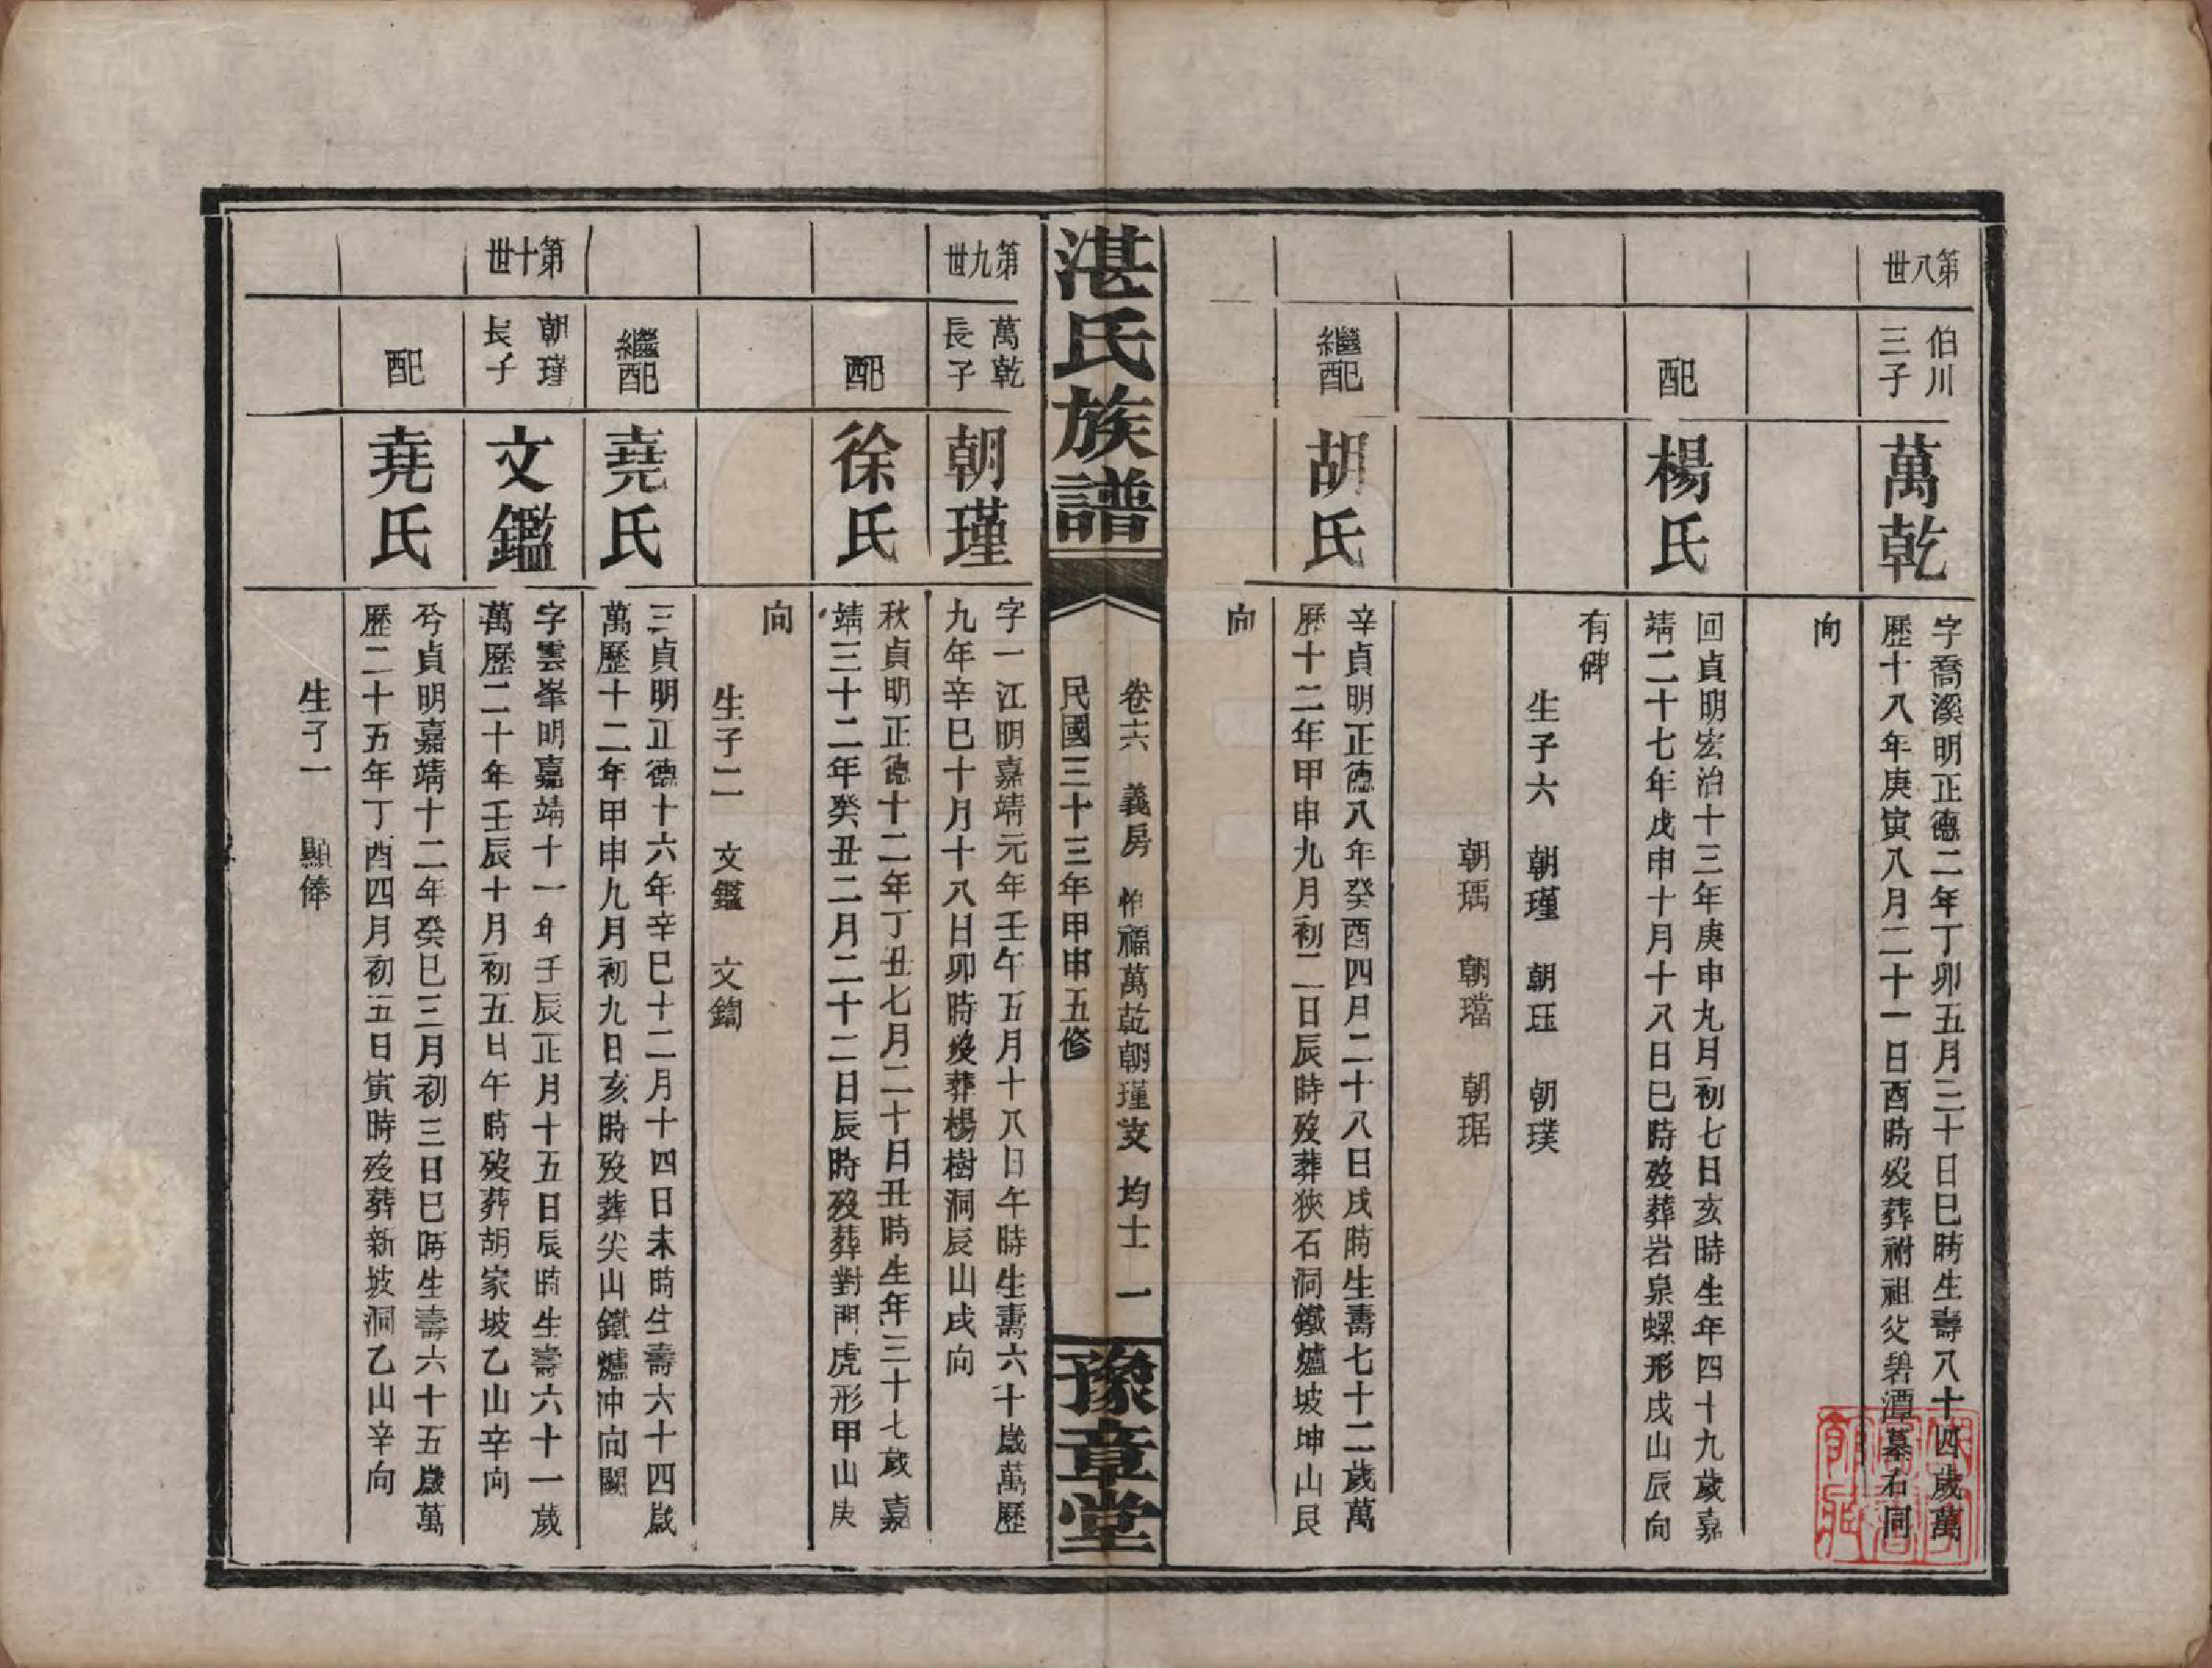 第八世
伯川三子
萬乾
字喬溪明正德二年丁卯五月三十日巳時生壽八十四歲萬
歷十八年庚寅八月二十一日酉時歿葬祔祖父碧潭墓右同
向
配
楊氏
回貞明宏治十三年庚申九月初七日亥時生年四十九歲嘉
靖二十七年戊申十月十八日巳時歿葬岩泉螺形戌山辰向
有碑
生子六 朝瑾 朝珏 朝璞
朝瑀 朝璫 朝琚
繼配
胡氏
辛貞明正德八年癸酉四月二十八日戌時生壽七十二歲萬
歷十二年甲申九月初二日辰時歿葬狹石洞鐵爐坡坤山艮
向
湛氏族譜
卷十六 義房 福萬乾朝瑾支 均士 一
民國三十三年甲申五修
豫章堂
第九世
萬乾長子
朝瑾
字一江明嘉靖元年壬午五月十八日午時生壽六十歲萬歷
九年辛巳十月十八日卯時歿葬楊樹洞辰山戌向
配
徐氏
秋貞明正德十二年丁丑七月二十日丑時生年三十七歲嘉
靖三十二年癸丑二月二十二日辰時歿葬對門虎形甲山庚
向
生子二 文鑑 文鑰
繼配
堯氏
三貞明正德十六年辛巳十二月十四日未時生壽六十四歲
萬歷十二年甲申九月初九日亥時歿葬尖山鐵爐冲向闕
第十世
朝瑾長子
文鑑
字雲峯明嘉靖十一年壬辰正月十五日辰時生壽六十一歲
萬歷二十年壬辰十月初五日午時歿葬胡家坡乙山辛向
配
堯氏
兮貞明嘉靖十二年癸巳三月初三日巳時生壽六十五歲萬
歷二十五年丁酉四月初五日寅時歿葬新坡洞乙山辛向
生子一 顯俸